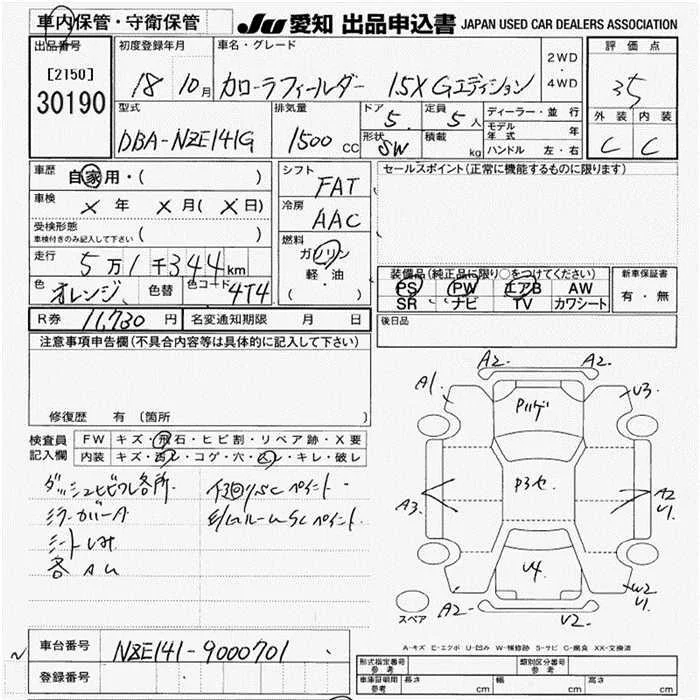 車内保管・守衛保管
JU 愛知 出品申込書 JAPAN USED CAR DEALERS ASSOCIATION
出品番号
[2150]
30190
初度登録年月
18 10月
車名・グレード
カローラフィールダー 1.5X Gエディション
2WD
・
4WD
評価点
3.5
外装 内装
C C
型式
DBA-NZE141G
排気量
1500 cc
ドア
5
定員
5人
形状
SW
積載
kg
ディーラー・並行
モデル年式 年
ハンドル 左・右
車歴
自家用・( )
車検
× 年 × 月(×日)
受検形態
車検付きのみ記入して下さい ( )
走行
5万1千344km
色
オレンジ
色替
色コード
4T4
シフト
FAT
冷房
AAC
燃料
ガソリン
軽・油
( )
セールスポイント(正常に機能するものに限ります)
装備品(純正品に限り○をつけてください)
PS PW エアB AW
SR ナビ TV カワシート
新車保証書
有・無
R券 11,730 円
名変通知期限 月 日
後日品
注意事項申告欄(不具合内容等は具体的に記入して下さい)
修復歴 有(箇所 )
検査員
記入欄
FW キズ・飛石・ヒビ割・リペア跡・X要
内装 キズ・汚レ・コゲ・穴・スレ・キレ・破レ
ミラーカバーA
A2 A2
A1 U3
P3セ
A3 A2
U1
U4
A2 W2
U1
U2
スペア
A-キズ E-エクボ U-凹み W-補修跡 S-サビ C-腐食 XX-交換済
車台番号
NZE141-9000701
登録番号
型式指定番号
参考
類別区分番号
参考
車庫証明用
参考
長さ cm 幅 cm 高さ cm